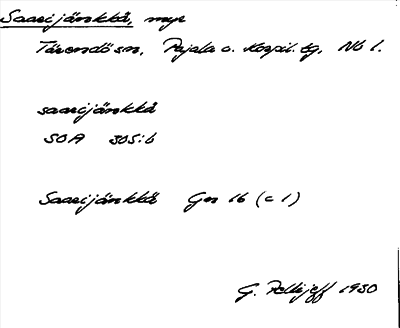 Saarijänkkä, myr
Tärendö sn, Pajala o. Korpil. tg, Nb l.
saarijänkkä
SOA 305:6
Saarijänkkä Gen 16 (c 1)
G. Pellijeff 1980